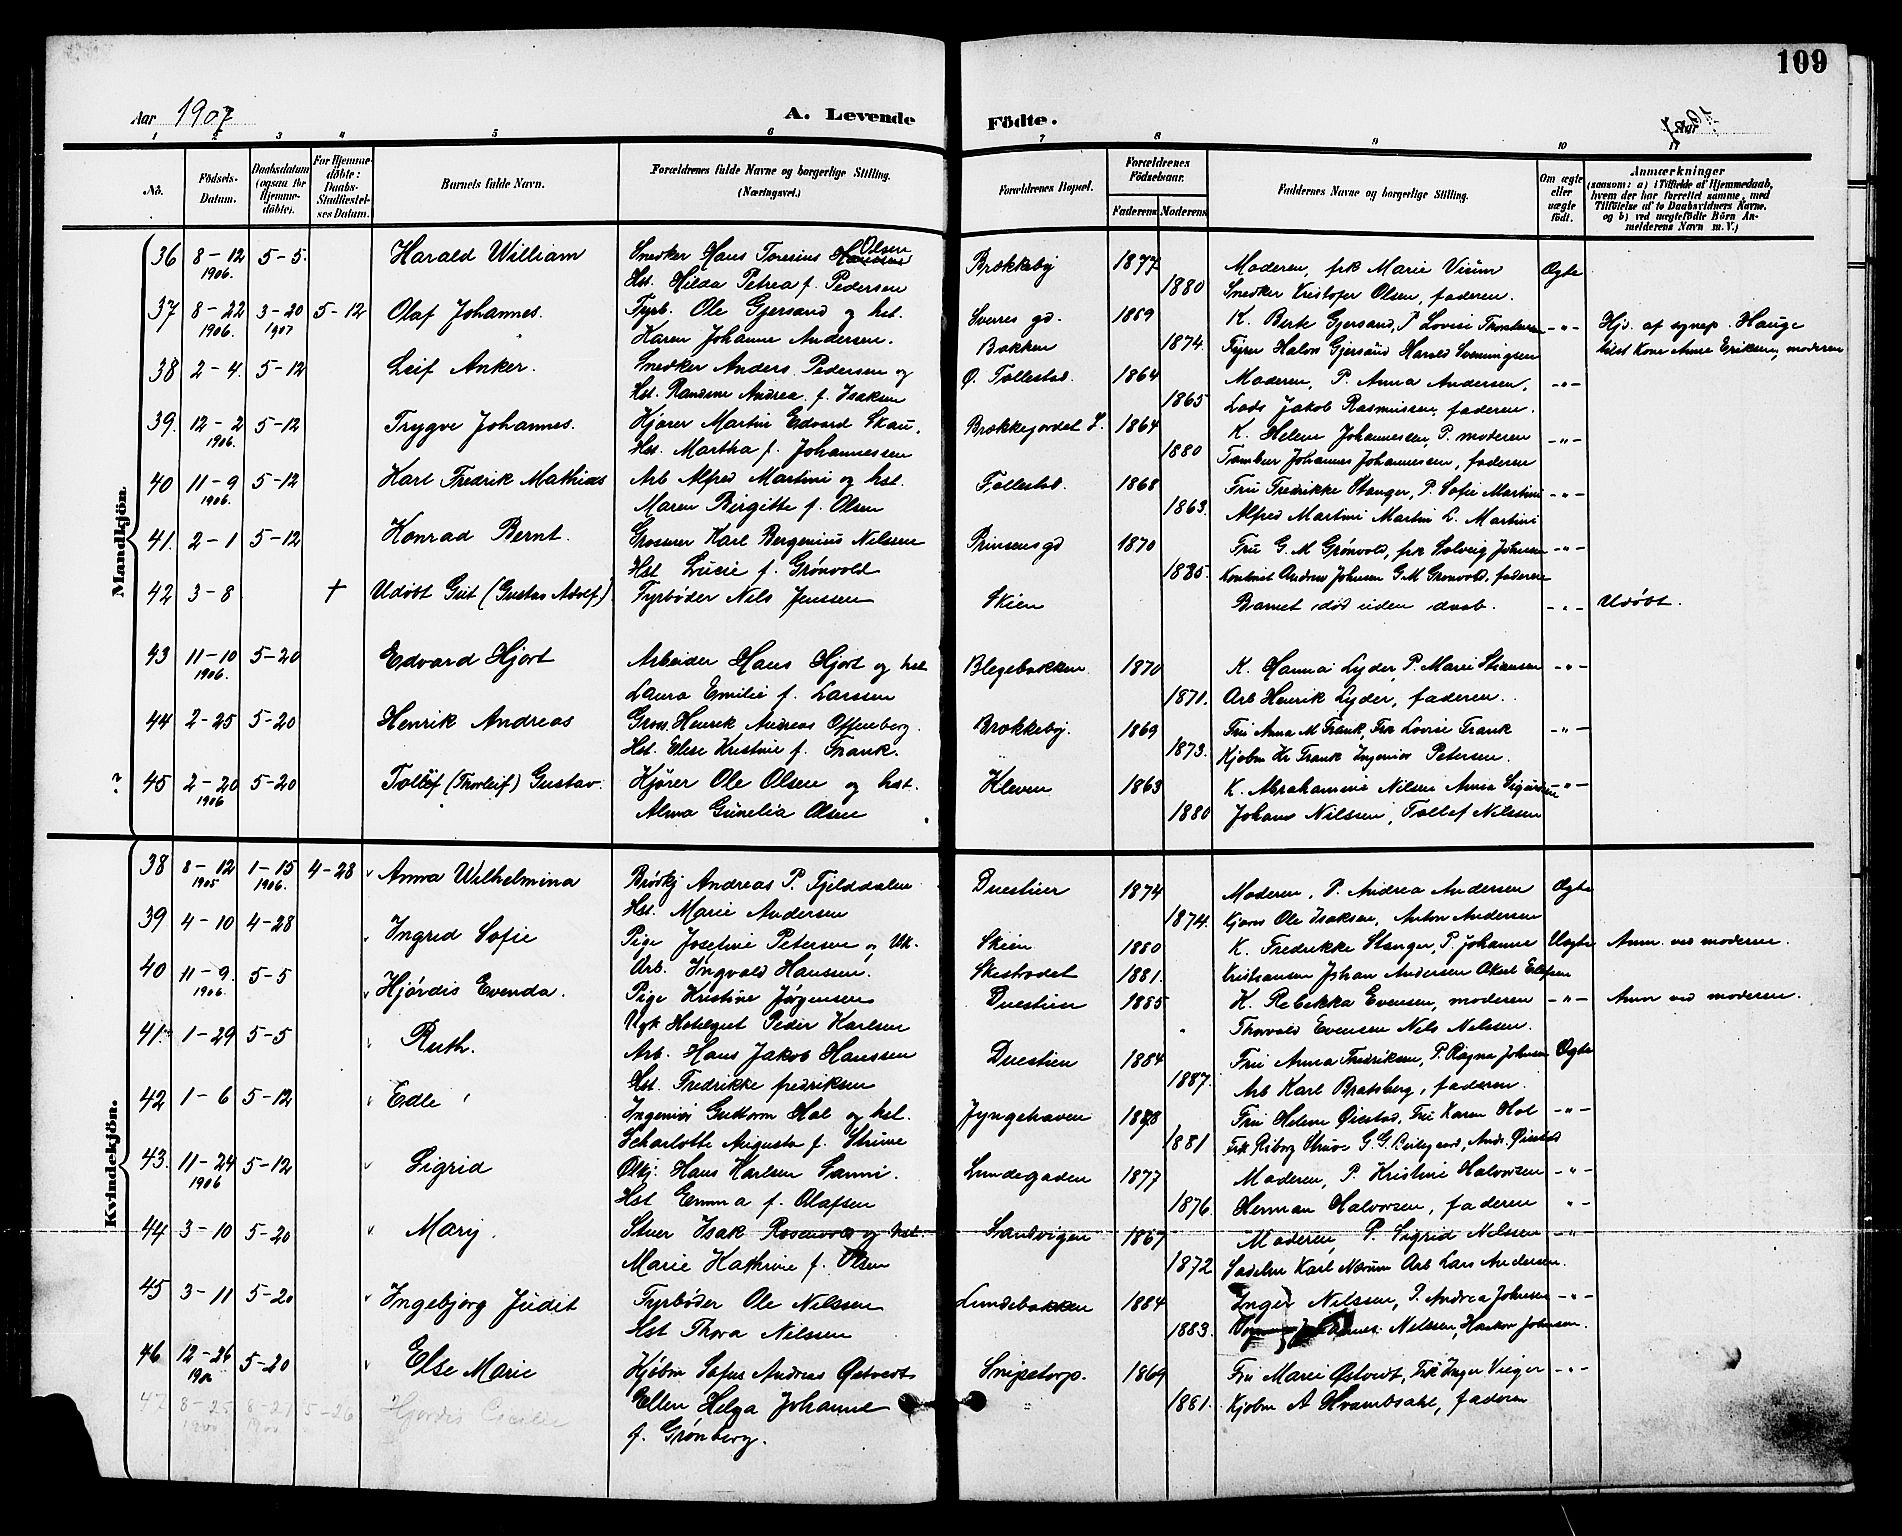 109
Aar 1907
A. Levende
Fødte.
Aar 1907
1 2 3 4 5 6 7 8 9 10 11
No.
Fødsels-Datum.
Daabsdatum (ogsaa for Hjemmedøbte).
For Hjemmedøbte: Daabs-Stadfæstelses Datum.
Barnets fulde Navn.
Forældrenes fulde Navne og borgerlige Stilling. (Næringsvei.)
Forældrenes Bopæl.
Forældrenes Fødselsaar.
Faderens Moderens
Faddernes Navne og borgerlige Stilling.
Om ægte eller uægte født.
Anmærkninger (saasom: a) i Tilfælde af Hjemmedaab, hvem der har forrettet samme, med Tilføielse af to Daabsvidners Navne, og b) ved uægtefødte Børn Anmelderens Navn m. V.)
Mandkjøn.
36 8-12 1906. 5-5. Harald William Snedker Hans Toresius Hanssen Olsen Brækkeby 1877 Moderen, frk Marie Virum Ægte
Hst. Hilda Petrea f. Pedersen 1880 Snedker Kristofer Olsen, faderen.
37 8-22 1906. 3-20 1907 5-12 Olaf Johannes. Fyrb. Ole Gjersand og hst. Sverres gd. 1859 K. Berte Gjersand, P Lovise -"- Hjd. af sygep. Hauge
Karen Johanne Andersen. Bakken 1874. Halvor Gjersand Harald Svenningsen tilst Kone Anne Eriksen, moderen
38 2-4. 5-12 Leif Anker. Snedker Anders Pedersen og Ø. Follestad. 1864 Moderen, P. Anna Andersen, -"-
Hst. Randine Andrea f. Isaksen 1865 Lods Jakob Rasmussen, faderen.
39. 12-2 1906. 5-12 Trygve Johannes. Kjører Martin Edvard Skau. Brækkejordet L. 1864 K. Helene Johannessen, P. moderen -"-
Hst. Martha f. Johannessen 1880 Johannes Johannessen, faderen
40 11-9 1906. 5-12 Karl Fredrik Mathias Arb Alfred Martini og hst. Follestad. 1868 Fru Fredrikke Stanger, P. Sofie Martini -"-
Maren Birgitte f. Olsen 1863. Alfred Martini Martin L. Martini
41. 2-1 5-12 Konrad Bernt. Grosserer Karl Bergenius Nilssen Prinsensgd 1870 Fru G. M Grønvold, frk Solveig Johnsen -"-
Hst Lucie f. Grønvold 1885. Kontorist Andreas Johnsen G. M Grønvold, faderen
42 3-8 + Udøbt Gut (Gustav Adolf) Fyrbøder Nils Jenssen Skien Barnet død uden daab. -"- Udøbt.
43 11-10 1906. 5-20 Edvard Hjort Arbeider Hans Hjort og hst Blegebakken 1870 K. Hanna Lyder, P. Marie Stiansen -"-
Laura Emilie f. Larssen 1871. Arb Henrik Lyder, faderen.
44 2-25 5-20 Henrik Andreas Gros. Henrik Andreas Offenberg Brækkeby. 1869 Fru Anna M Frank, Frk Lovise Frank -"-
Hst. Elise Kristine f. Frank. 1873. Kjøbm Kr Frank Ingeniør Petersen.
? 45 2-20 1906 5-20 Tollef (Thorleif) Gustav. Kjører Ole Olsen og hst. Kleven 1863 K. Abrahamine Nilsen Anna -"-
Alma Gunelia Olsen 1880 Johans Nilssen, Tollef Nilssen
Kvindekjøn.
38 8-12 1905 1-15 1906. 4-28 Anna Wilhelmina Andreas P. Fjelddalen Duestien 1874 Moderen, P. Andrea Andersen Ægte
Hst. Marie Andersen 1874. Ole Isaksen, Anton Andersen
39 4-10 4-28 Ingrid Sofie Pige Josefine Petersen og Uk. Skien 1880 K. Fredrikke Stanger, P. Johanne Uægte Anm. ved moderen.
Arb. Ingvald Hanssen. 1881. Kristiansen Johan Andersen
40 11-9. 1906. 5-5 Hjørdis Evenda. Pige Kristine Jørgensen Duestien 1885 K. Rebekka Evensen, moderen -"- Anm ved moderen.
Ugk Peder Karlsen " Thorvald Evensen Nils Nilssen.
41. 1-29 5-5 Ruth. Arb. Hans Jakob Hanssen Duestien 1884 Fru Anna Fredriksen, P. Ragna Johnsen Ægte
Hst. Fredrikke fredriksen 1887. Arb Karl Bratsberg, faderen.
42 1-6 5-12 Edle Ingeniør Guttorm Hol og hst. Jyngehaven 1878 Fru Helene Øiestad, Fru Karen Hol -"-
Scharlotte Augusta f. Strüve 1881
43. 11-24 1906 5-12 Sigrid Hans Karlsen Lundegaden 1877 Moderen, P. Kristine Halvorsen -"-
Hst Emma f. Olafsen 1876. Herman Halvorsen, faderen "-
44 3-10 5-20 Mary. Isak og hst. Sandvigen 1867 Moderen, P. Sigrid Nilsen -"-
Marie Kathrine f. Olsen 1872 Karl Nærum Arb Lars Andersen.
45 3-11 5-20 Ingebjørg Judit Fyrbøder Ole Nilssen Lundebakken 1884 Inger Nilssen, P. Andrea Johnsen -"-
Hst Thora Nilssen 1883. Nilssen, Haakon Johnsen.
46 12-26 5-20 Else Marie Kjøbm Sofus Andreas Østvedt Snipetorp. 1869 Fru Marie Østvedt, Frk Inger -"-
Ellen Helga Johanne 1881. Kjøbm A Kvambsahl, faderen
f. Grønberg.
47 8-25 8-27 5-26 Hjørdis Cecilie